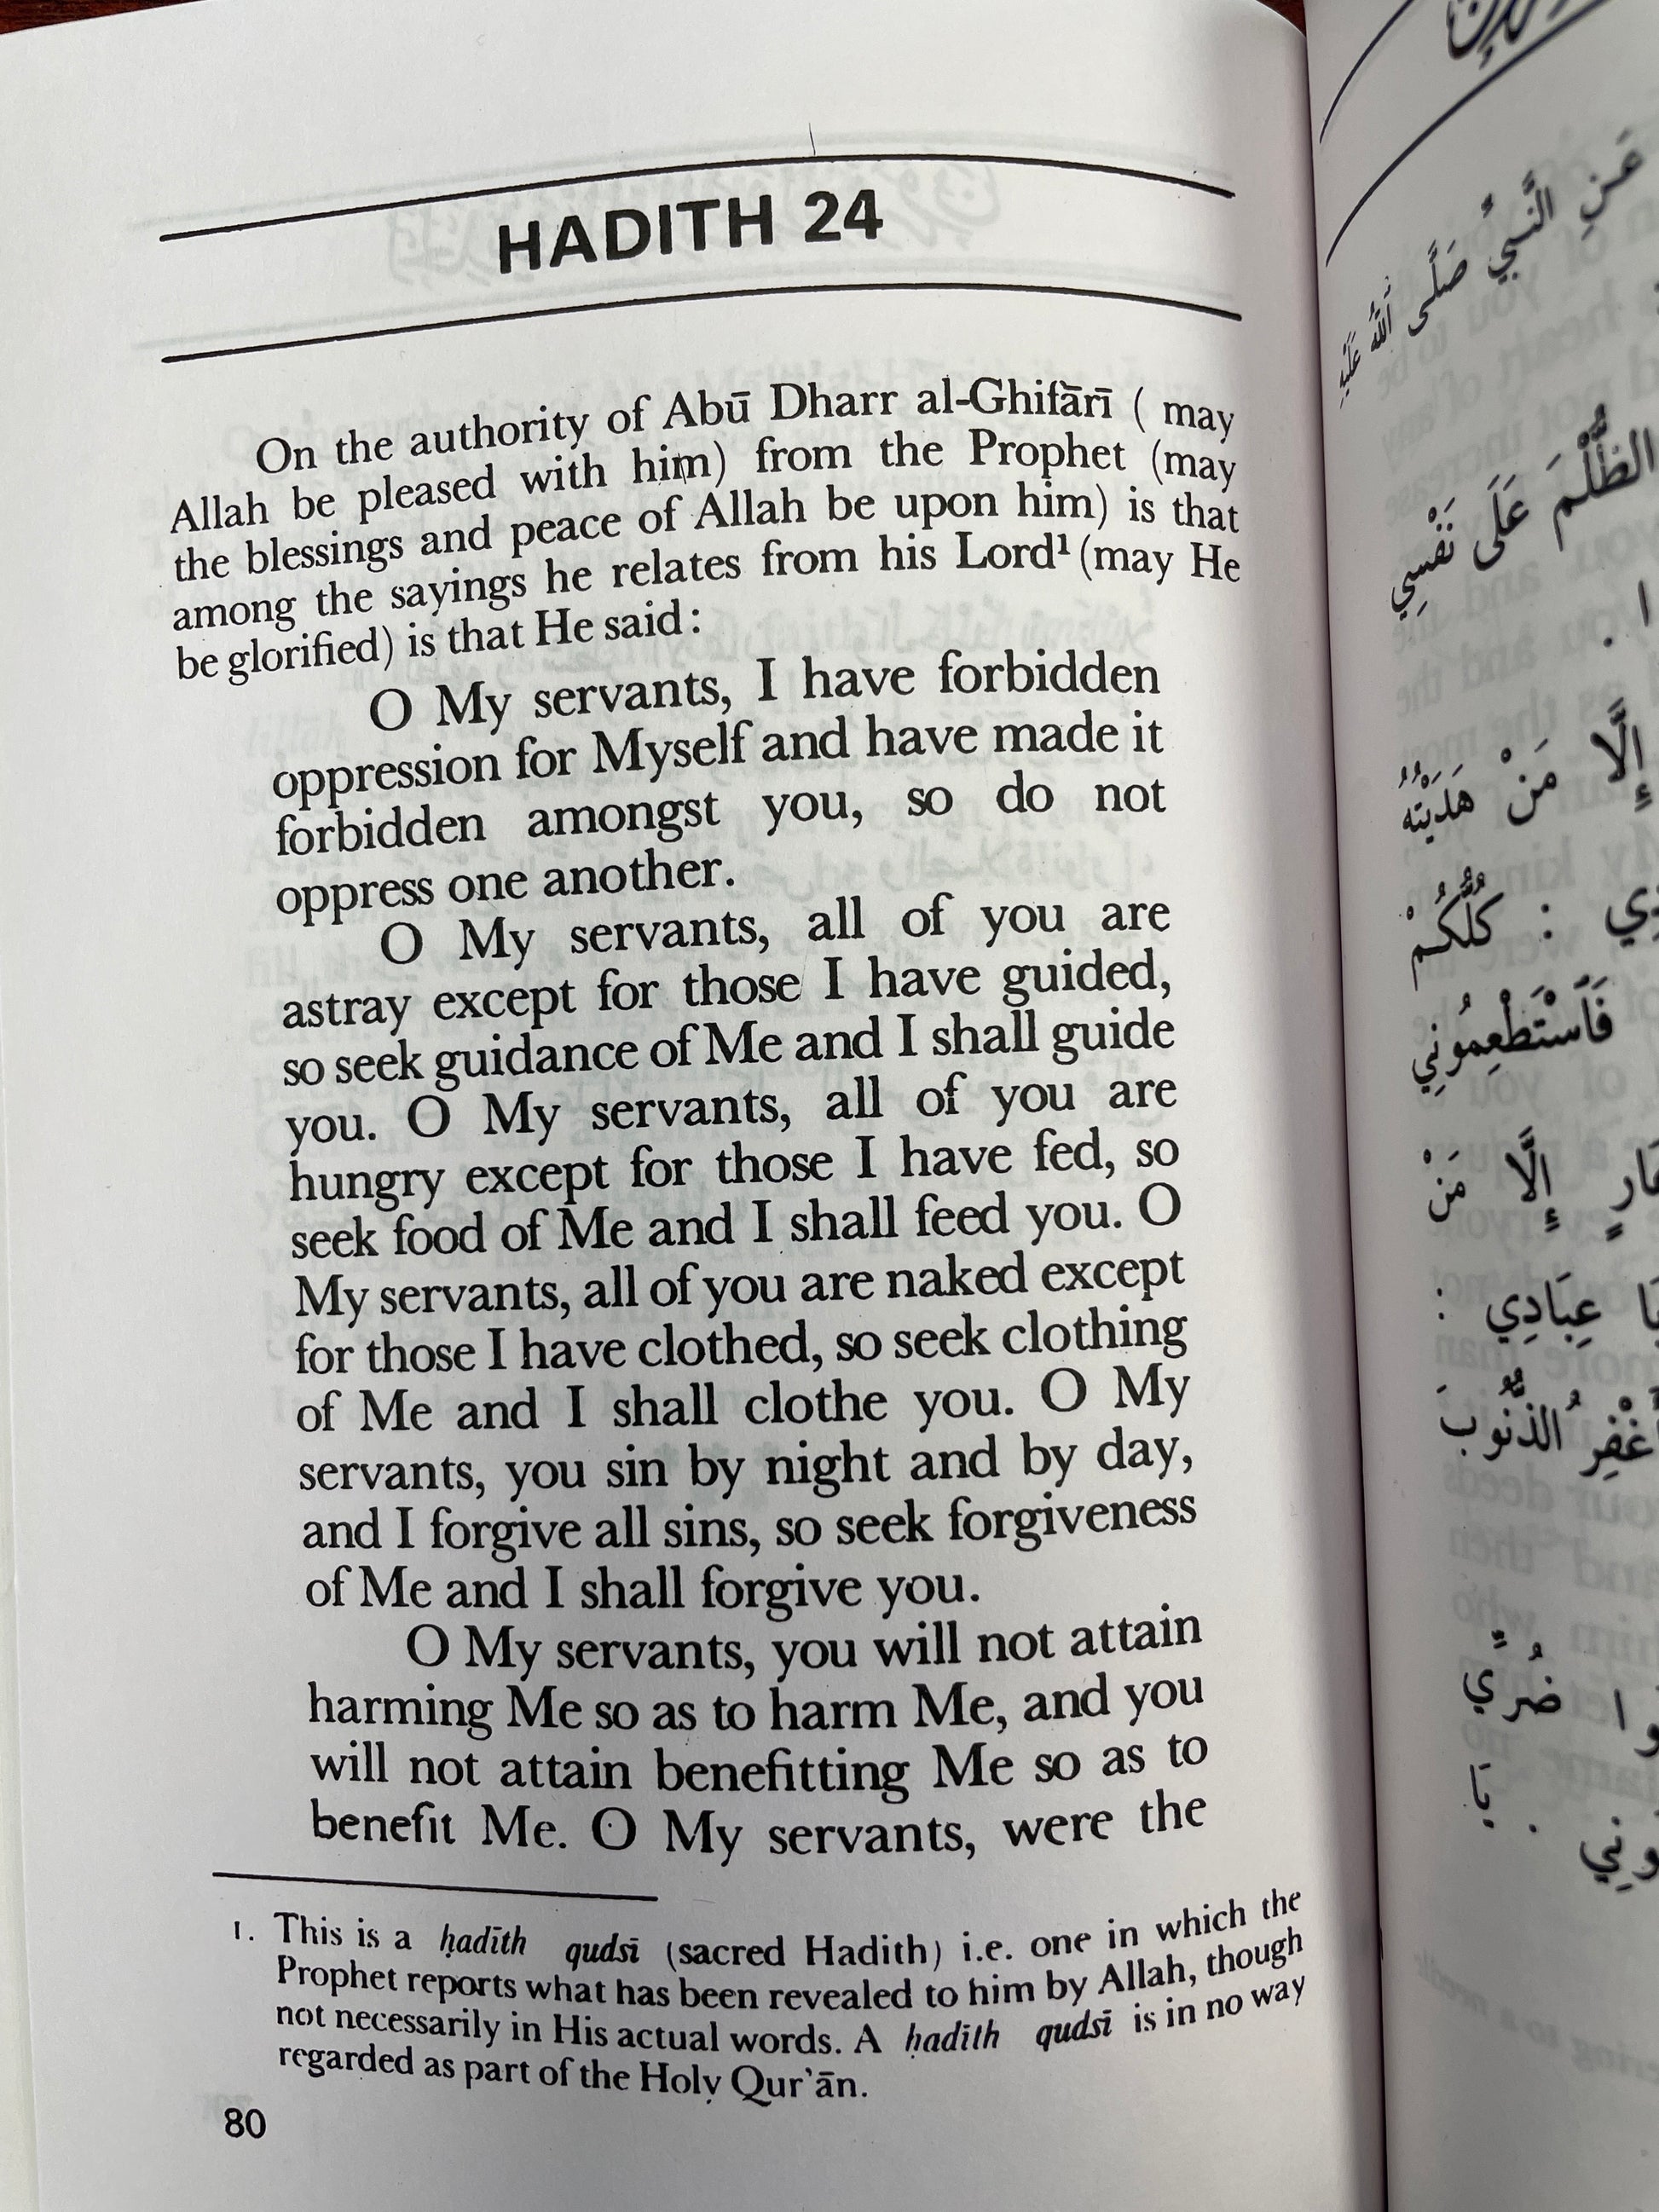 HADITH 24
On the authority of Abū Dharr al-Ghifārī ( may
Allah be pleased with him) from the Prophet (may
the blessings and peace of Allah be upon him) is that
among the sayings he relates from his Lord¹ (may He
be glorified) is that He said:
O My servants, I have forbidden
oppression for Myself and have made it
forbidden amongst you, so do not
oppress one another.
O My servants, all of you are
astray except for those I have guided,
so seek guidance of Me and I shall guide
you. O My servants, all of you are
hungry except for those I have fed, so
seek food of Me and I shall feed you. O
My servants, all of you are naked except
for those I have clothed, so seek clothing
of Me and I shall clothe you. O My
servants, you sin by night and by day,
and I forgive all sins, so seek forgiveness
of Me and I shall forgive you.
O My servants, you will not attain
harming Me so as to harm Me, and you
will not attain benefitting Me so as to
benefit Me. O My servants, were the
1. This is a ḥadīth qudsī (sacred Hadith) i.e. one in which the
Prophet reports what has been revealed to him by Allah, though
not necessarily in His actual words. A ḥadīth qudsī is in no way
regarded as part of the Holy Qur'ān.
80
عَنِ النَّبِيِّ صَلَّى اللَّهُ عَلَيْهِ
الظُّلْمَ عَلَى نَفْسِي
إِلَّا مَنْ هَدَيْتُهُ
: كُلُّكُمْ
فَاسْتَطْعِمُونِي
إِلَّا مَنْ
يَا عِبَادِي :
الذُّنُوبَ
ضُرِّي
يَا